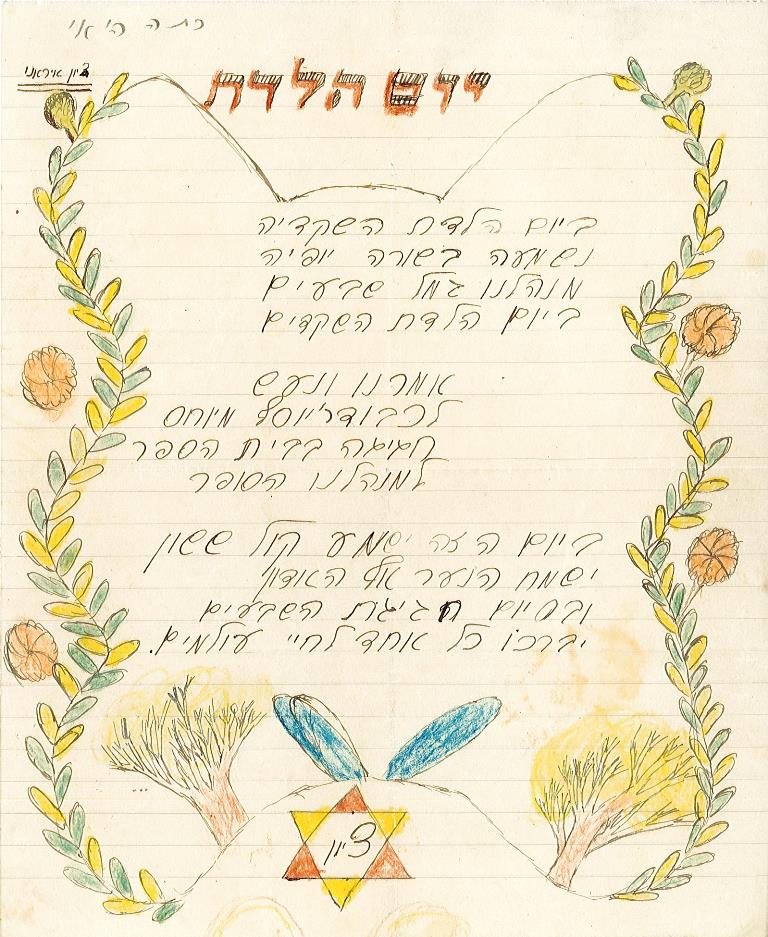 כתה ה' א'
ציון איראני
יום הולדת
ביום הלדת השקדיה
נשמעה בשורה יופיה
מנהלנו גמל שבעים
ביום הלדת השקדים
אמרנו ונעש
לכבוד ר' יוסף מיוחס
חגיגה בבית הספר
למנהלנו הסופר
ביום הזה ישמע קול ששון
ישמח הנער אף האדון
ובסיום חגיגות השבעים
יברכו כל אחד לחיי עולמים.
ציון